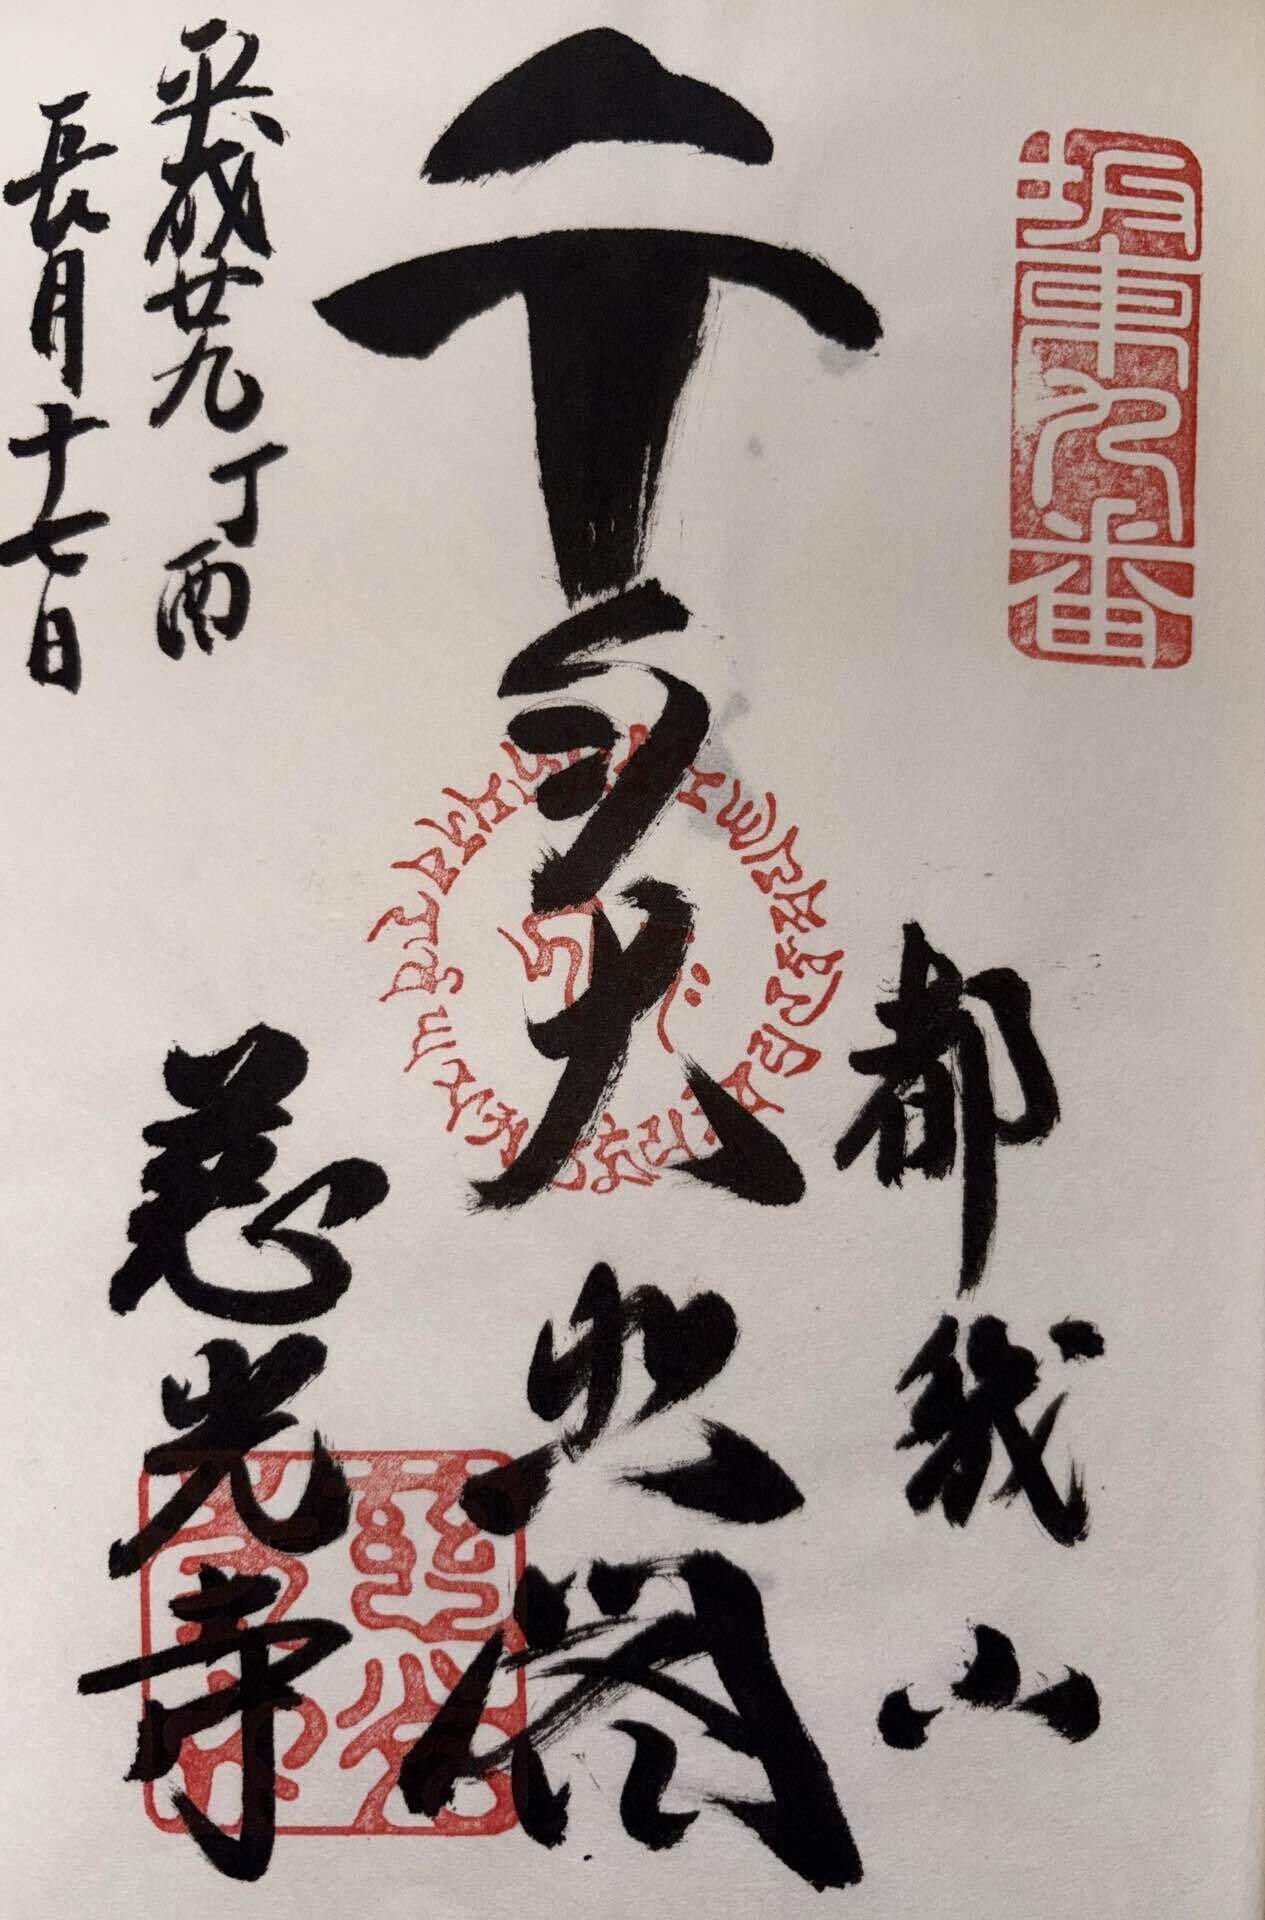 坂東九番
都幾山
千手大悲閣
慈光寺
平成廿九丁酉
長月十七日
慈光寺印